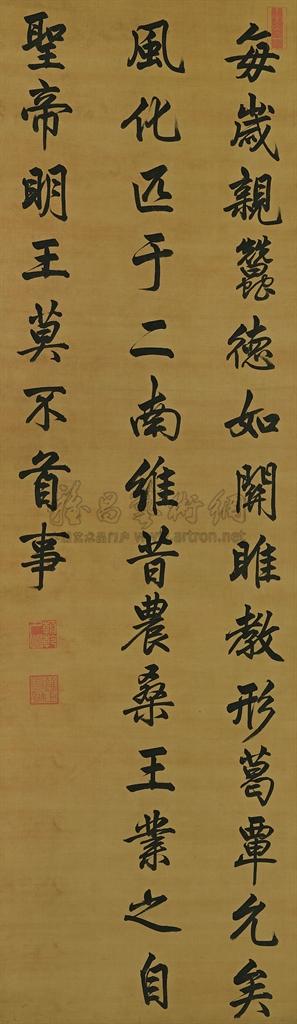 每歲親蠶德如關雎教形葛覃允矣
風化匹于二南維昔農桑王業之自
聖帝明王莫不首事
雅昌藝術網
www.artron.net